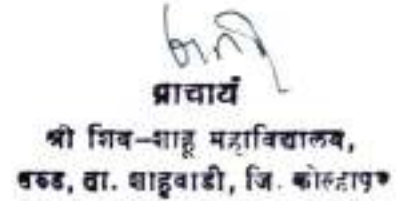 प्राचार्य
श्री शिव-शाहू महाविद्यालय,
ता. शाहूवाडी, जि. कोल्हापूर